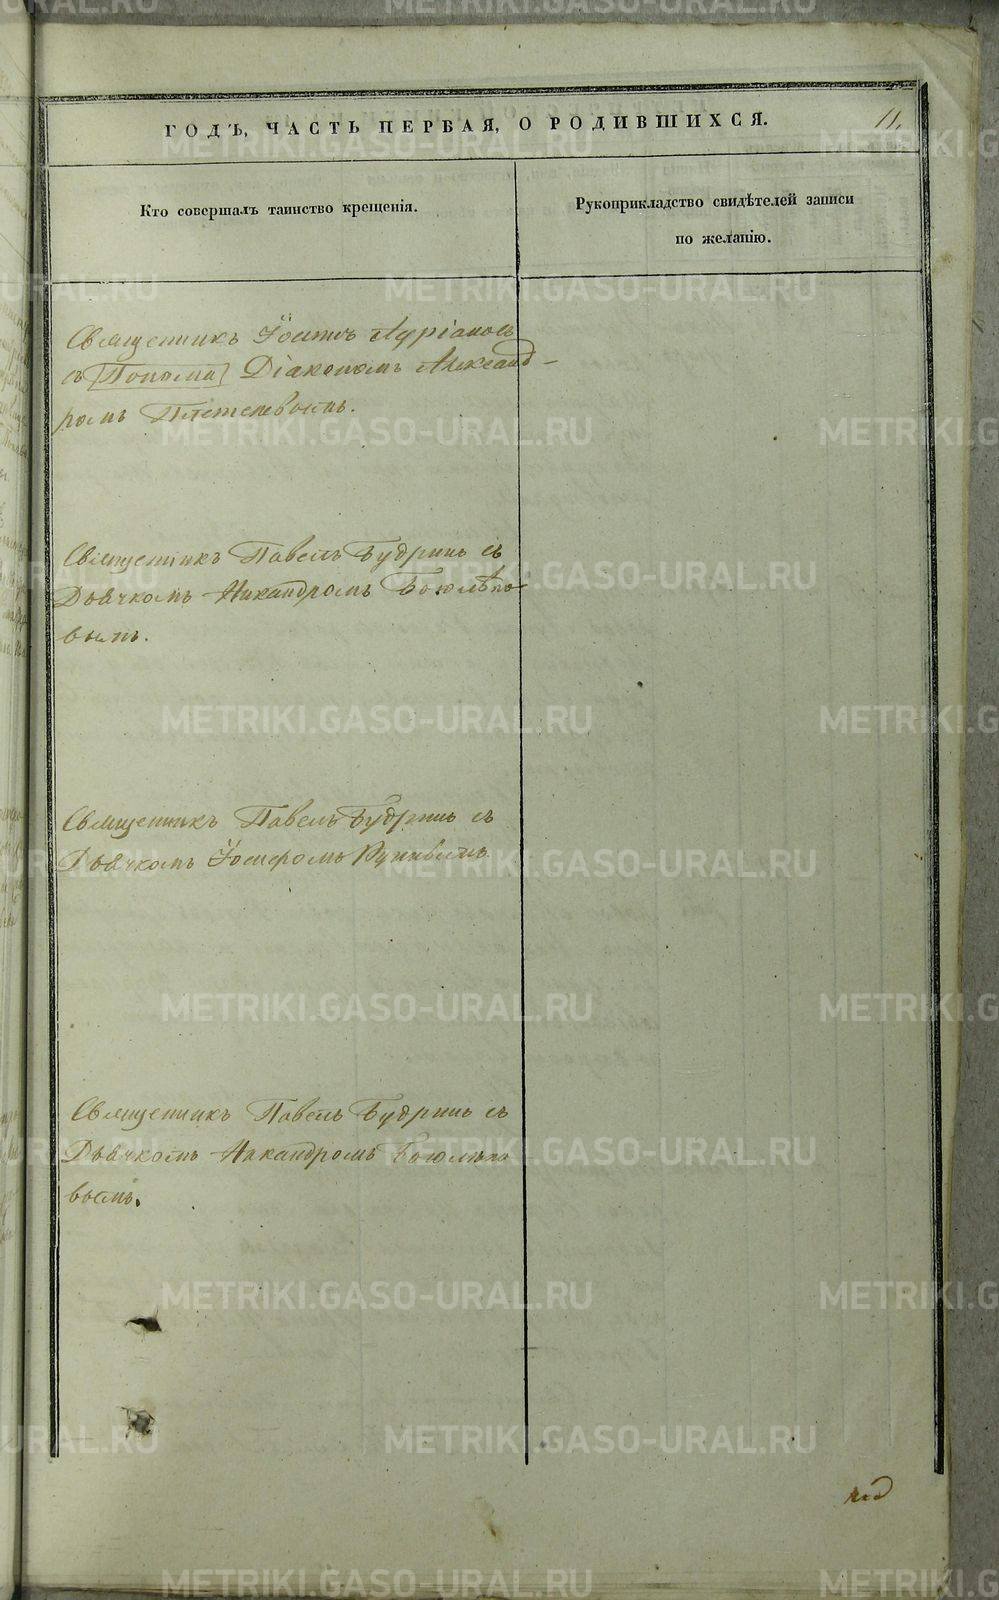 ГОДЪ, ЧАСТЬ ПЕРВАЯ, О РОДИВШИХСЯ.
11.
Кто совершалъ таинство крещенія.
Рукоприкладство свидѣтелей записи
по желанію.
Священникъ Іоаннъ Адріановъ
съ [Пономи] Діакономъ Александ-
ромъ Плетеневымъ.
Священникъ Павелъ Будринъ съ
Дьячкомъ Никандромъ Боголѣпо-
вымъ.
Священникъ Павелъ Будринъ съ
Дьячкомъ Іосифомъ
Священникъ Павелъ Будринъ съ
Дьячкомъ Никандромъ Боголѣпо
вымъ.
METRIKI.GASO-URAL.RU